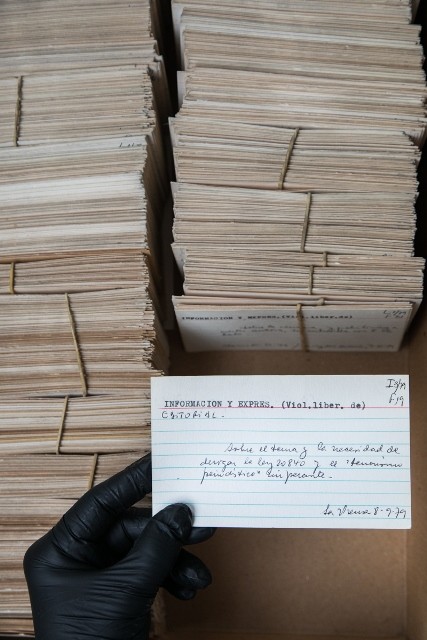 INFORMACION Y EXPRES.(Viol.liber.de)
INFORMACION Y EXPRES. (Viol.liber. de)
F19
EDITORIAL.
Sobre el tema y la necesidad de
derogar la ley 20840 y el "terrorismo
periodístico" imperante.
La Prensa 8-9-79